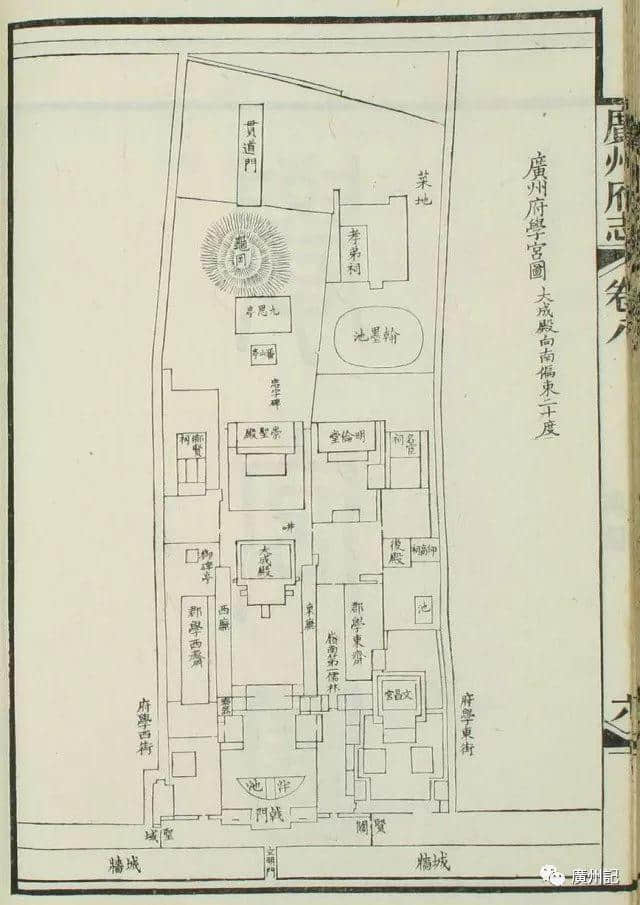 廣州府志
卷八
六
廣州府學宮圖
大成殿向南偏東二十度
貫道門
菜地
孝弟祠
九思亭
翰墨池
崇聖殿
明倫堂
名宦祠
鄉賢祠
井
大成殿
後殿
御碑亭
池
郡學西齋
西廡
東廡
郡學東齋
嶺南第一儒林
文昌宮
府學西街
府學東街
泮池
戟門
聖域
賢關
文明門
城牆
城牆
廣州記